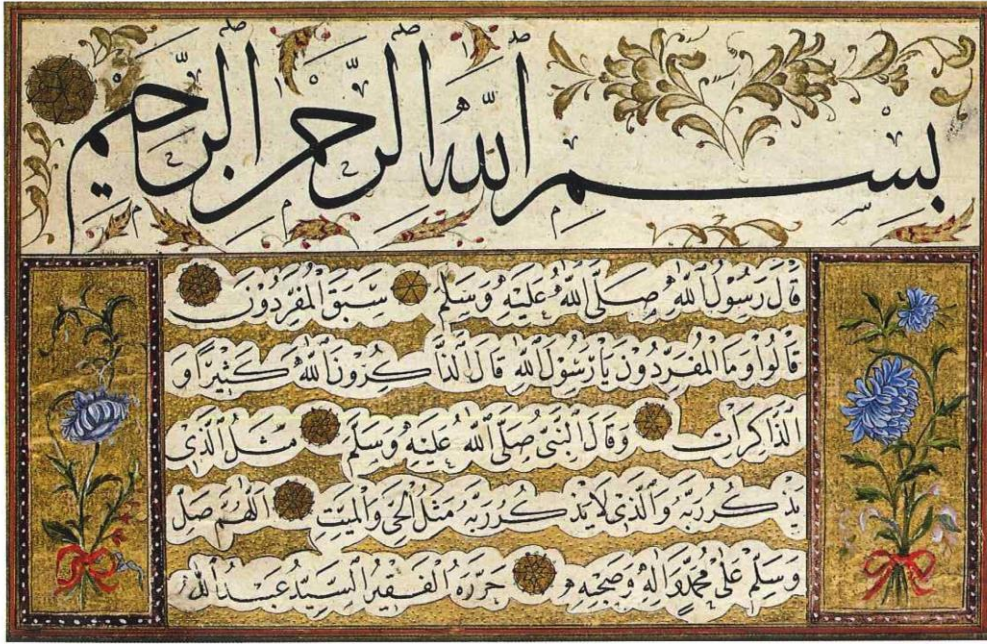 بِسْمِ ٱللّٰهِ ٱلرَّحْمٰنِ ٱلرَّحِيْمِ
قَالَ رَسُوْلُ ٱللّٰهِ صَلَّى ٱللّٰهُ عَلَيْهِ وَسَلَّمَ سَبَقَ ٱلْمُفَرِّدُوْنَ
قَالُوا وَمَا ٱلْمُفَرِّدُوْنَ يَا رَسُوْلَ ٱللّٰهِ قَالَ ٱلذَّاكِرُوْنَ ٱللّٰهَ كَثِيْرًا وَ
ٱلذَّاكِرَاتُ وَقَالَ ٱلنَّبِىُّ صَلَّى ٱللّٰهُ عَلَيْهِ وَسَلَّمَ مَثَلُ ٱلَّذِى
يَذْكُرُ رَبَّهُ وَٱلَّذِى لَا يَذْكُرُ رَبَّهُ مَثَلُ ٱلْحَىِّ وَٱلْمَيِّتِ ٱللّٰهُمَّ صَلِّ
وَسَلِّمْ عَلٰى مُحَمَّدٍ وَاٰلِهِ وَصَحْبِهِ حَرَّرَهُ ٱلْفَقِيْرُ ٱلسَّيِّدُ عَبْدُ ٱللّٰهِ